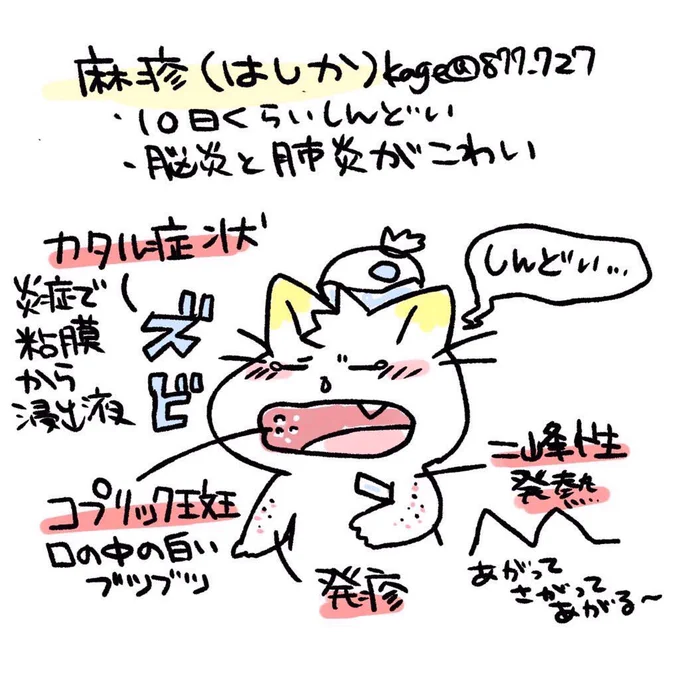 麻疹(はしか)kage@877_727
・10日くらいしんどい
・脳炎と肺炎がこわい
カタル症状
炎症で
粘膜
から
浸出液
ズビ
しんどい...
コプリック斑
口の中の白い
ブツブツ
発疹
二峰性
発熱
あがって
さがって
あがる〜